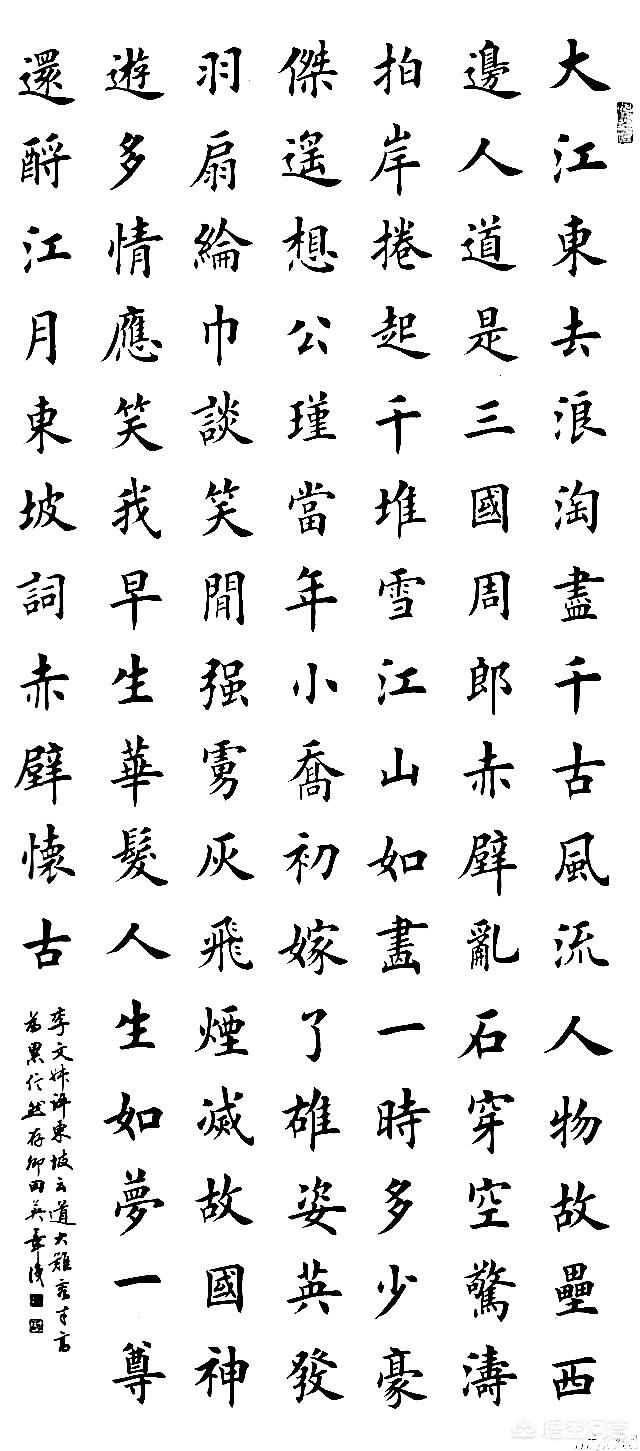 大江東去浪淘盡千古風流人物故壘西
邊人道是三國周郎赤壁亂石穿空驚濤
拍岸捲起千堆雪江山如畫一時多少豪
傑遙想公瑾當年小喬初嫁了雄姿英發
羽扇綸巾談笑閒强虜灰飛煙滅故國神
遊多情應笑我早生華髮人生如夢一尊
還酹江月東坡詞赤壁懷古
李文姝評東坡云道大難容才高
為累信然存卿田英章
悟空问答